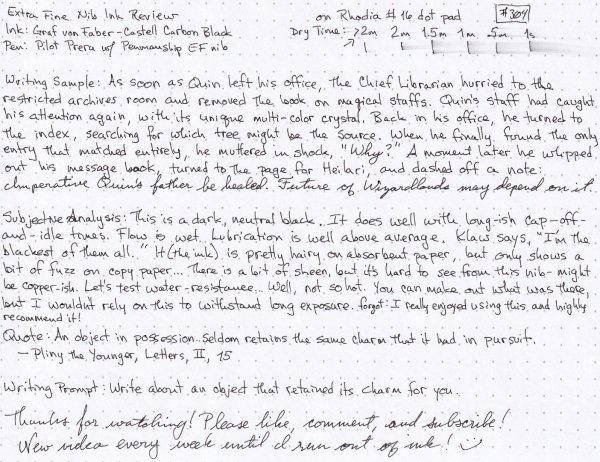 Extra Fine Nib Ink Review
on Rhodia #16 dot pad
#304
Ink: Graf von Faber-Castell Carbon Black
Dry Time: >2m 2m 1.5m 1m .5m 1s
Pen: Pilot Prera w/ Penmanship EF nib
Writing Sample: As soon as Quin left his office, the Chief Librarian hurried to the
restricted archives room and removed the book on magical staffs. Quin's staff had caught
his attention again, with its unique multi-color crystal. Back in his office, he turned to
the index, searching for which tree might be the source. When he finally found the only
entry that matched entirely, he muttered in shock, "Why?" A moment later he whipped
out his message book, turned to the page for Heilari, and dashed off a note:
Imperative Quin's father be healed. Future of Wizardlands may depend on it.
Subjective Analysis: This is a dark, neutral black. It does well with long-ish cap-off-
and-idle times. Flow is wet. Lubrication is well above average. Klaw says, "I'm the
blackest of them all." It (the ink) is pretty hairy on absorbent paper, but only shows a
bit of fuzz on copy paper... There is a bit of sheen, but it's hard to see from this nib-might
be copper-ish. Let's test water-resistance... Well, not so hot. You can make out what was there,
but I wouldn't rely on this to withstand long exposure. forgot: I really enjoyed using this and highly
recommend it!
Quote: An object in possession seldom retains the same charm that it had in pursuit.
- Pliny the Younger, Letters, II, 15
Writing Prompt: Write about an object that retained its charm for you.
Thanks for watching! Please like, comment, and subscribe!
New video every week until I run out of ink! :)